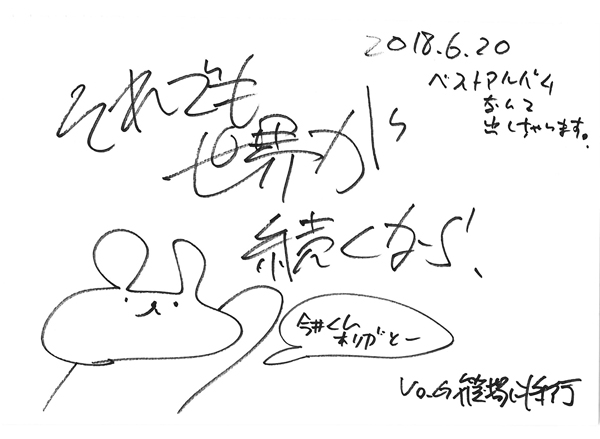 2018.6.20
ベストアルバム
なんて
出しちゃいます。
それでも
世界が
続くなら、
今井くん
ありがとー
Vo.G 篠塚将行